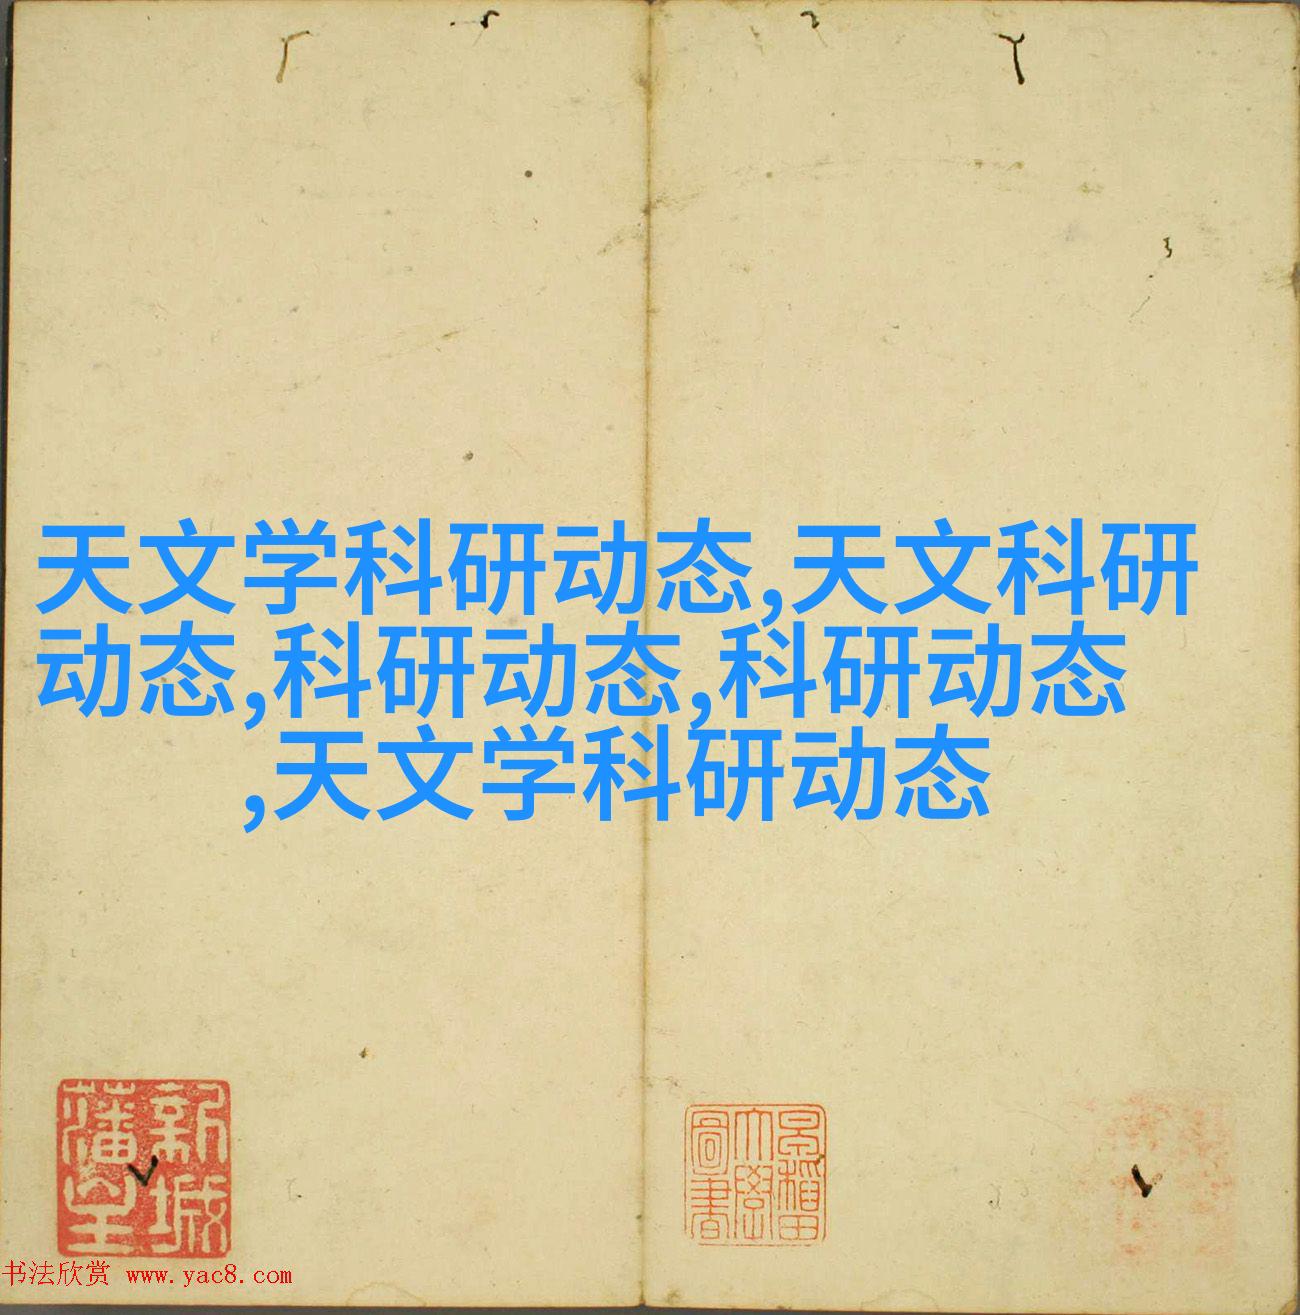 天文学科研动态,天文科研
动态,科研动态,科研动态
,天文学科研动态
新城
藩室
早稻田
大學
圖書
书法欣赏 www.yac8.com